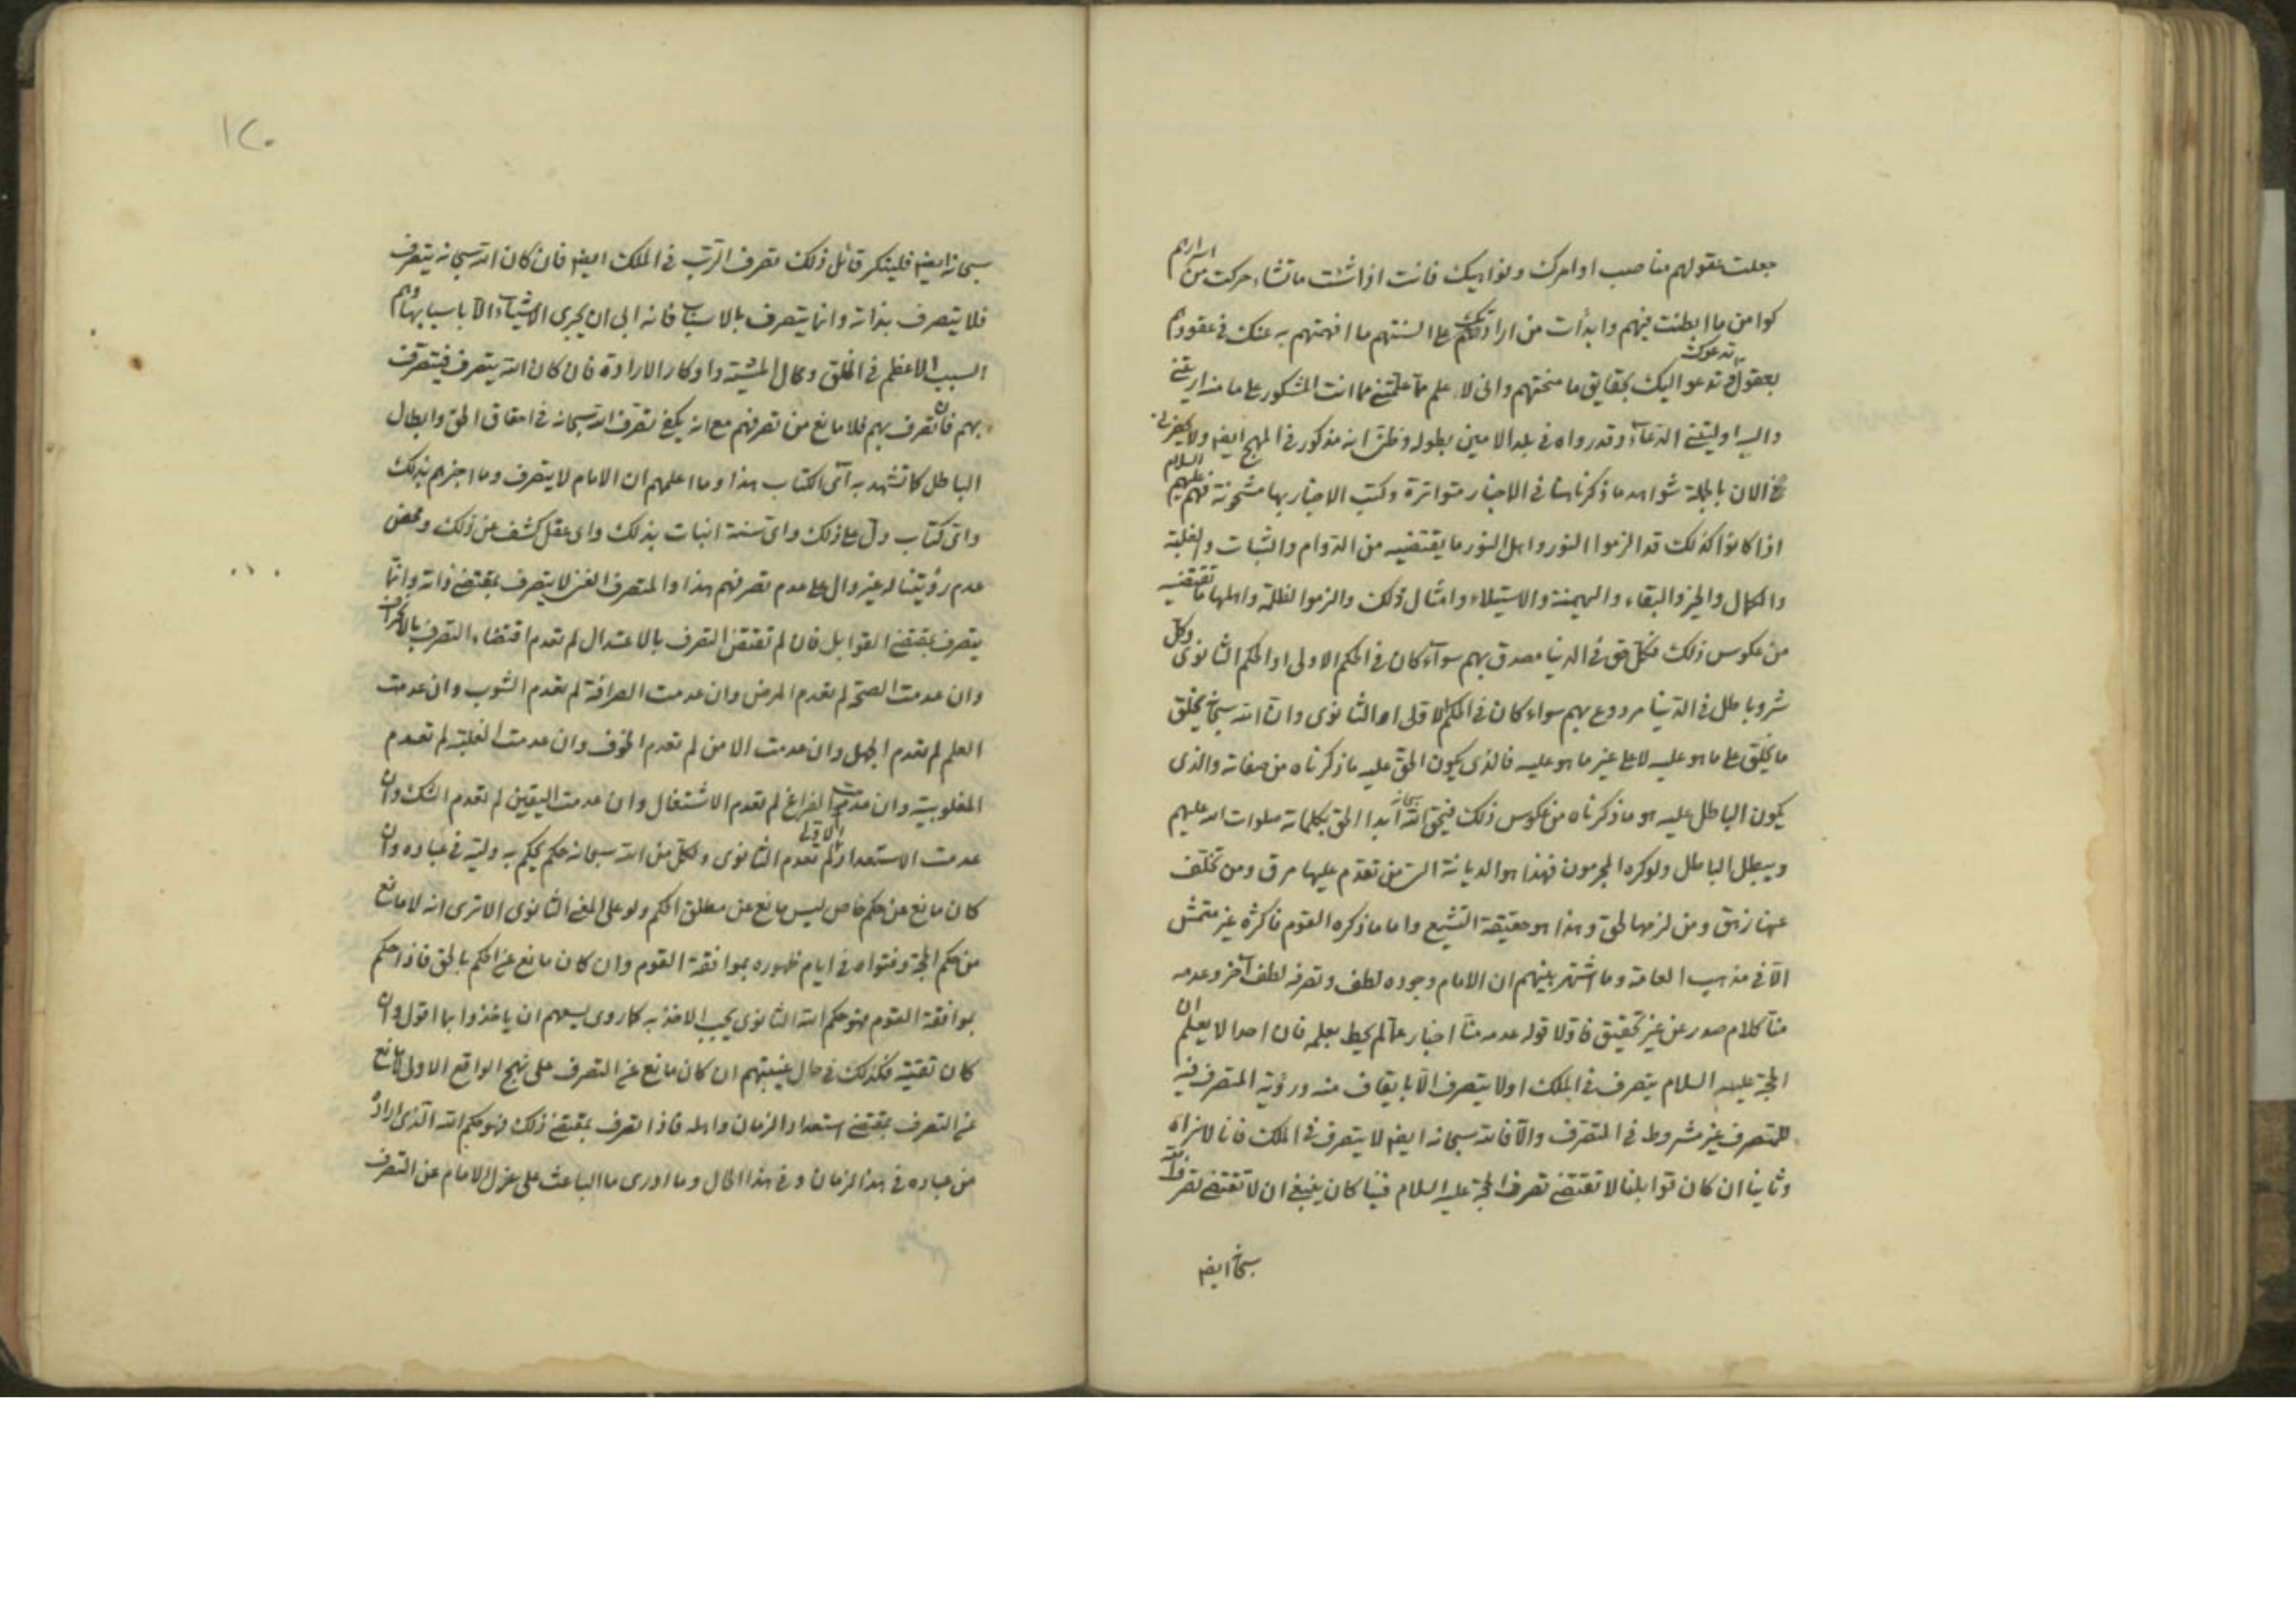 جعلت عقولهم مناصب اوامرك ونواهيك فانت اذا شئت ما تشاء حركت من اسرارهم
كوامن ما ابطنت فيهم وابدأت من ارادتك على السنتهم ما افهمتهم به عنك في عقودهم
بعقول تدعوك وتدعو اليك بحقايق ما منحتهم واني لاعلم مما علمتني مما انت المشكور على ما منه اريتني
واليه اويتني الدعاء وقد رواه في بلد الامين بطوله وظني انه مذكور في المهج ايضا ولا يحضرني
الان بالجملة شواهد ما ذكرنا هنا في الاخبار متواترة وكتب الاخبار بها مشحونة فهم عليهم السلام
اذا كانوا كذلك قد الزموا النور واهل النور ما يقتضيه من الدوام والثبات والغلبة
والكمال والخير والبقاء والهيمنة والاستيلاء وامثال ذلك والزموا الظلمة واهلها ما تقتضيه
من عكوس ذلك فكل حق في الدنيا مصدق بهم سواء كان في الحكم الاولى او الحكم الثانوى وكل
شر وباطل في الدنيا مردوع بهم سواء كان في الحكم الاولى او الثانوى وان الله سبحانه يخلق
ما يخلق على ما هو عليه لا على غير ما هو عليه فالذى يكون الحق عليه ما ذكرناه من صفاته والذى
يكون الباطل عليه هو ما ذكرناه من عكوس ذلك فيحق الله سبحانه ابدا الحق بكلماته صلوات الله عليهم
ويبطل الباطل ولو كره المجرمون فهذا هو الديانة التي من تقدم عليها مرق ومن تخلف
عنها زهق ومن لزمها لحق وهذا هو حقيقة التشيع واما ما ذكره القوم فاكثره غير متمش
الا في مذهب العامة وما اشتهر بينهم ان الامام وجوده لطف وتصرفه لطف آخر وعدمه
منا كلام صدر عن غير تحقيق فاولا قوله عدمه منا اخبار عما لم يحط بعلمه فان احدا لا يعلم ان
الحجة عليه السلام يتصرف في الملك او لا يتصرف الا بايقاف منه ورؤية المتصرف فيه
للمتصرف غير مشروط في التصرف والا فالله سبحانه ايضا لا يتصرف في الملك فانا لا نراه
وثانيا ان كان قوابلنا لا تقتضي تصرف الحجة عليه السلام فينا كان ينبغي ان لا تقتضي تصرف الله
سبحانه ايضا
١٢٠
سبحانه ايضا فلينكر قائل ذلك تصرف الرب في الملك ايضا فان كان الله سبحانه يتصرف
فلا يتصرف بذاته وانما يتصرف بالاسباب فانه ابى ان يجرى الاشياء الا باسبابها وهم
السبب الاعظم في الخلق ومحال المشية واوكار الارادة فان كان الله يتصرف فيتصرف
بهم فان تصرف بهم فلا مانع من تصرفهم مع انه يكفي تصرف الله سبحانه في احقاق الحق وابطال
الباطل كما تشهد به آى الكتاب هذا وما اعلمهم ان الامام لا يتصرف وما اخبرهم بذلك
واى كتاب دل على ذلك واى سنة انبات بذلك واى عقل كشف عن ذلك ومحض
عدم رؤيتنا له غير دال على عدم تصرفهم هذا والمتصرف الغني لا يتصرف بمقتضى ذاته وانما
يتصرف بمقتضى القوابل فان لم تقتض التصرف بالاعتدال لم تعدم اقتضاء التصرف بالانحراف
وان عدمت الصحة لم تعدم المرض وان عدمت الصرافة لم تعدم الشوب وان عدمت
العلم لم تعدم الجهل وان عدمت الامن لم تعدم الخوف وان عدمت الغلبة لم تعدم
المغلوبية وان عدمت الفراغ لم تعدم الاشتغال وان عدمت اليقين لم تعدم الشك وان
عدمت الاستعداد الاولى لم تعدم الثانوى ولكل من الله سبحانه حكم يحكم به وليه في عباده وان
كان مانع عن حكم خاص ليس مانع عن مطلق الحكم ولو على المعنى الثانوى الا ترى انه لا مانع
من حكم الحجة وفتواه في ايام ظهوره بموافقة القوم وان كان مانع عن الحكم بالحق فاذا حكم
بموافقة القوم فهو حكم الله الثانوى يجب الاخذ به كما روى يسعهم ان ياخذوا بما اقول وان
كان تقية فكذلك في حال غيبتهم ان كان مانع عن التصرف على نهج الواقع الاولى لا مانع
عن التصرف بمقتضى استعداد الزمان واهله فاذا تصرف بمقتضى ذلك فهو حكم الله الذى اراده
من عباده في هذا الزمان وفي هذا الحال وما ادرى ما الباعث على عزل الامام عن التصرف